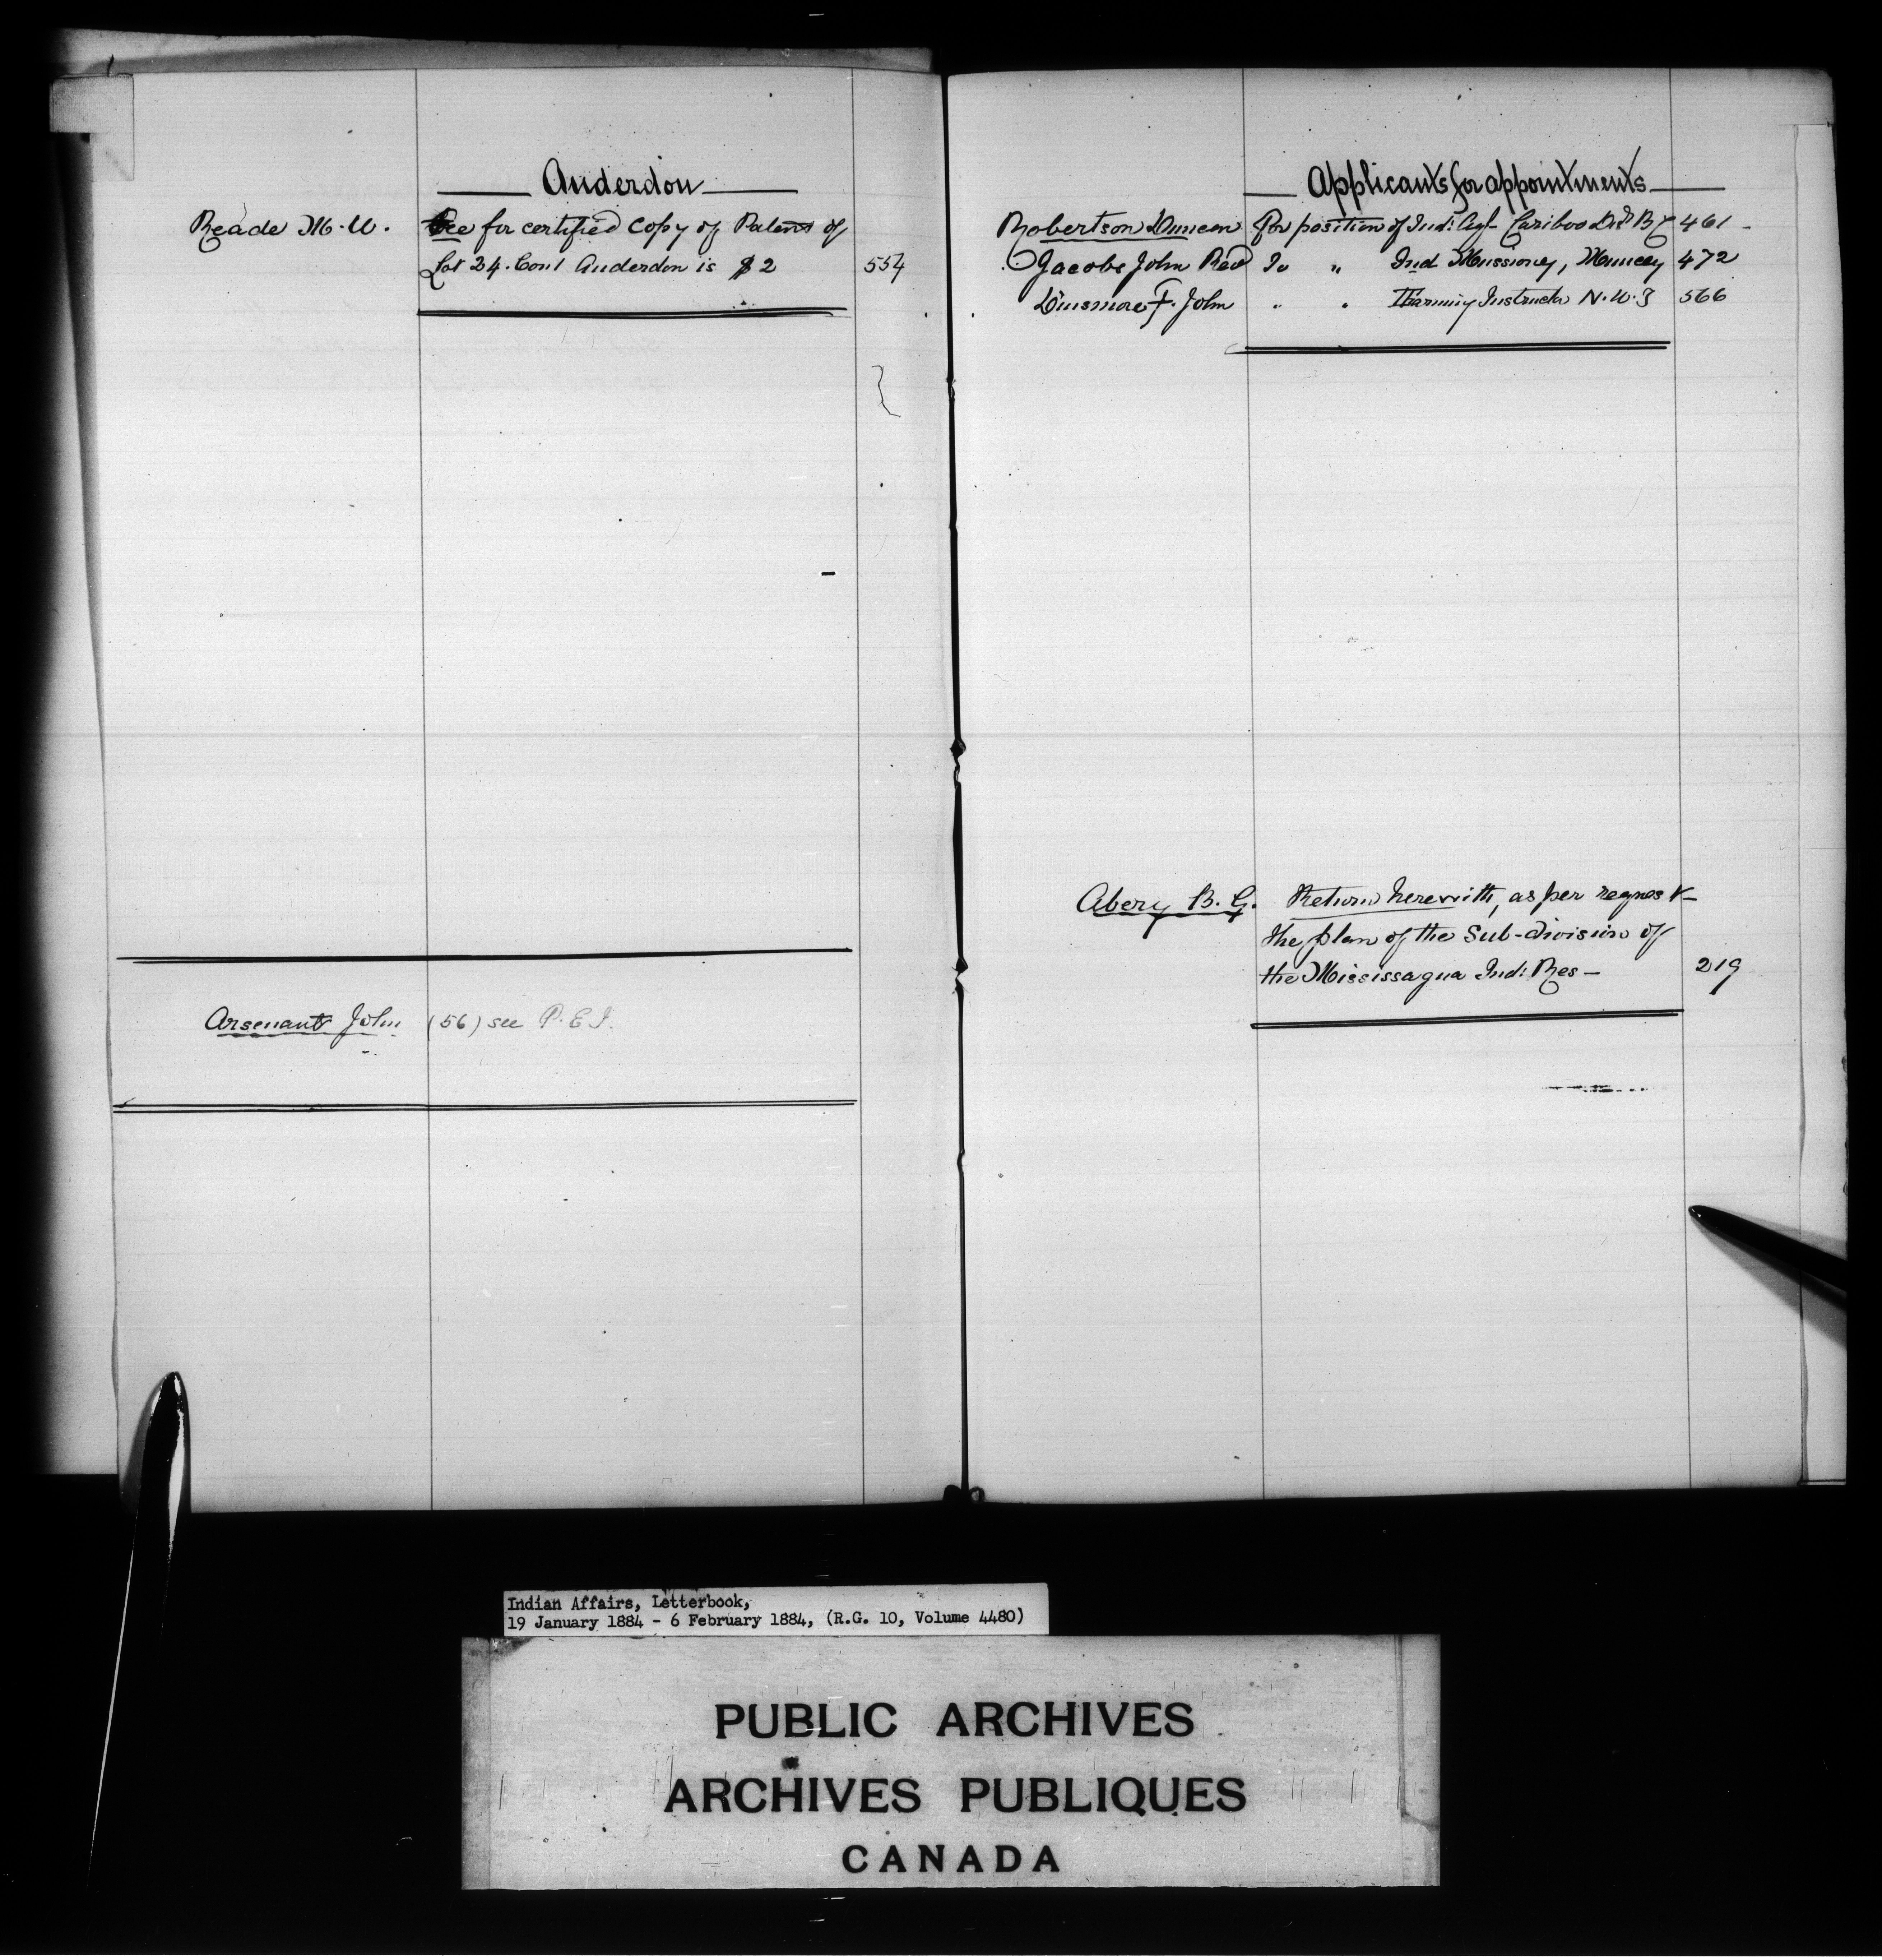 Anderdon
Reade M. W. Fee for certified copy of Patent of
Lot 24. Con 1 Anderdon is $2 554
Arsenant John (56) see P.E.I.
Applicants for appointments
Robertson Duncan For position of Ind: Agt Cariboo Dist BC 461
Jacobs John Revd To " Ind Missionary, Muncey 472
Dinsmore F. John " " Farming Instructor N.W.T 566
Abery B. G. Return herewith, as per request
the plan of the Sub-division of
the Mississagua Ind: Res — 219
Indian Affairs, Letterbook,
19 January 1884 - 6 February 1884, (R.G. 10, Volume 4480)
PUBLIC ARCHIVES
ARCHIVES PUBLIQUES
CANADA